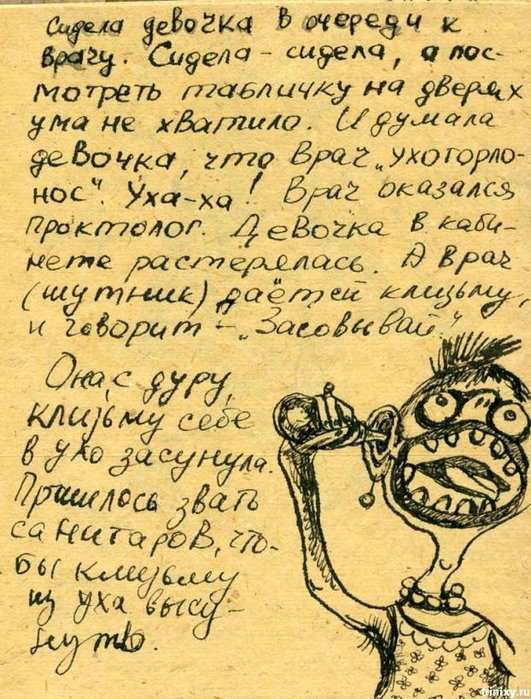 Сидела девочка в очереди к
врачу. Сидела-сидела, а пос-
мотреть табличку на дверях
ума не хватило. И думала
девочка, что врач „ухогорло-
нос“. Уха-ха! Врач оказался
проктолог. Девочка в каби-
нете растерялась. А врач
(шутник) даёт ей клизьму,
и говорит – „Засовывай!“
Она, с дуру,
клизьму себе
в ухо засунула.
Пришлось звать
санитаров, что-
бы клизьму
из уха высу-
нуть.
trinixy.ru